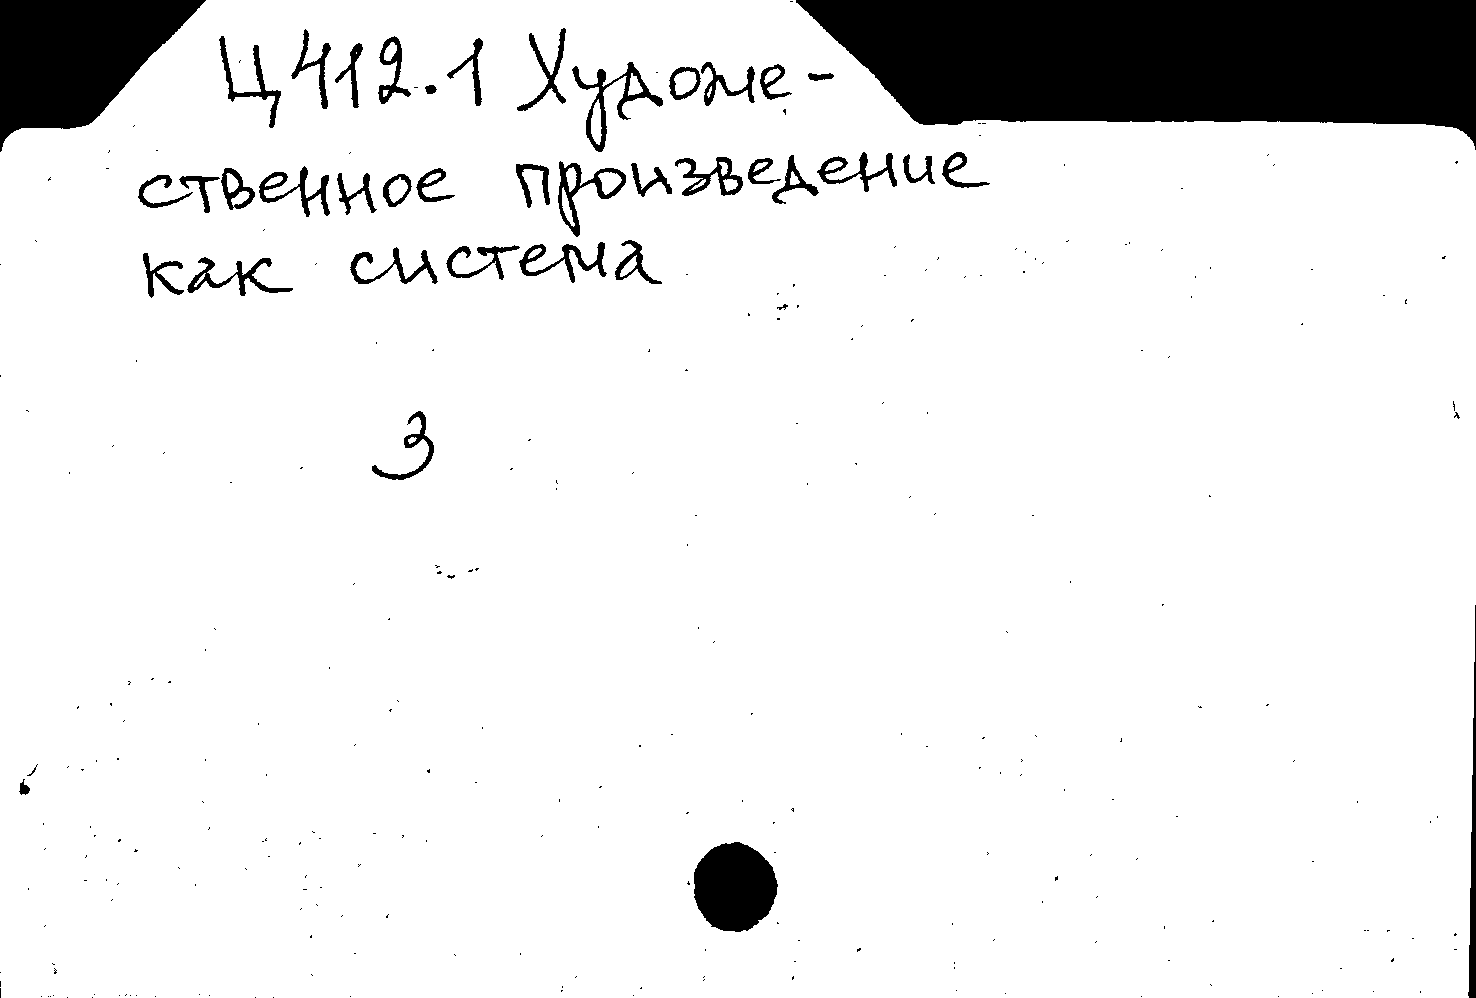 Ц412.1 Художе-
ственное произведение
как система
З